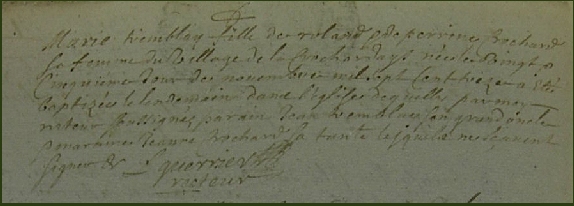 Marie tremblay fille de roland & de perrine Brochard
sa femme du Village de la Brochardays née le vingt &
Cinquieme Jour de novembre mil sept cent treze a été
baptizée le lendemain dans l'eglise de quelle par moy
recteur soussigné, parain Jean tremblay son grand oncle
& maraine Jeanne Brochard sa tante lesquels ne scavent
signer &
guerrier
recteur